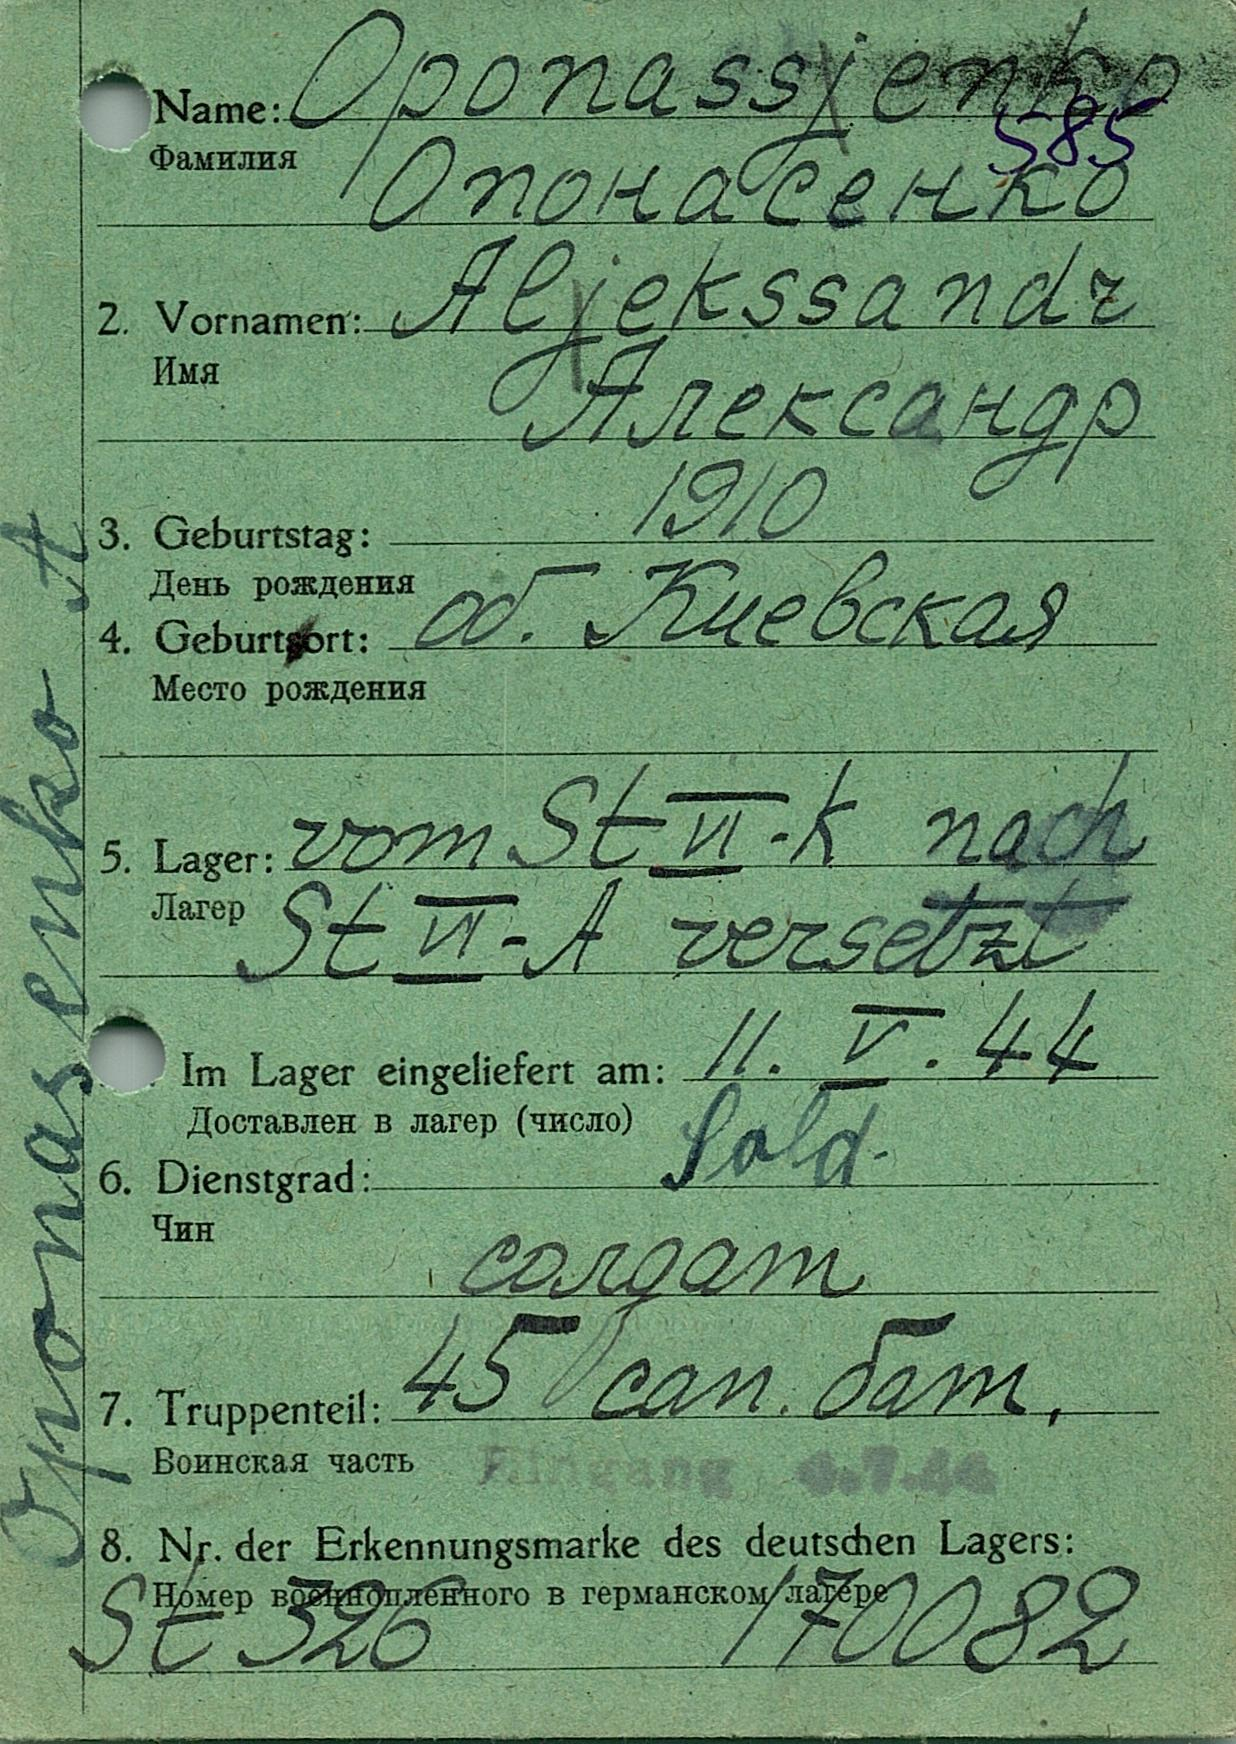 Name: Oponassjenko
585
Фамилия
Опонасенко
2. Vornamen: Aljekssandr
Имя
Александр
3. Geburtstag: 1910
День рождения
4. Geburtsort: об. Киевская
Место рождения
5. Lager: vom St VI-K nach
Лагер St VI-A versetzt
Im Lager eingeliefert am: 11. V. 44
Доставлен в лагер (число)
6. Dienstgrad: Sold.
Чин
солдат
7. Truppenteil: 45 сап. бат.
Воинская часть
Eingang 4.7.44
8. Nr. der Erkennungsmarke des deutschen Lagers:
Номер военнопленного в германском лагере
St 326 170082
Oponasenko A